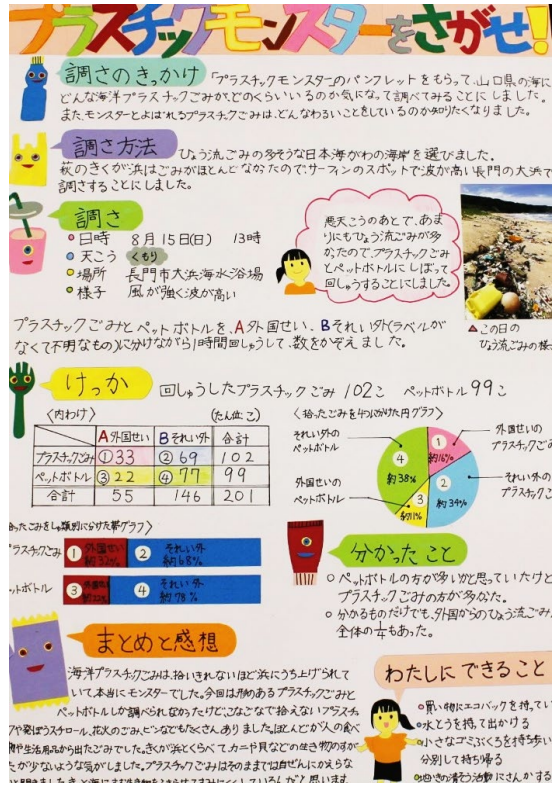 プラスチックモンスターをさがせ!
調さのきっかけ 「プラスチックモンスター」のパンフレットをもらって、山口県の海に
どんな海洋プラスチックごみが、どのくらいいるのか気になって調べてみることにしました。
また、モンスターとよばれるプラスチックごみは、どんなわるいことをしているのか知りたくなりました。
調さ方法 ひょう流ごみの多そうな日本海がわの海岸を選びました。
萩のきくが浜はごみがほとんどなかったので、サーフィンのスポットで波が高い長門の大浜で
調さすることにしました。
調さ
日時 8月15日(日) 13時
天こう くもり
場所 長門市大浜海水浴場
様子 風が強く波が高い
悪天こうのあとで、あま
りにもひょう流ごみが多
かったので、プラスチックごみ
とペットボトルにしぼって
回しゅうすることにしました。
▲この日の
ひょう流ごみの様
プラスチックごみとペットボトルを、A外国せい、Bそれい外(ラベルが
なくて不明なもの)に分けながら1時間回しゅうして、数をかぞえました。
けっか 回しゅうしたプラスチックごみ 102こ ペットボトル 99こ
〈内わけ〉 (たん位:こ)
A外国せい Bそれい外 合計
プラスチックごみ ①33 ②69 102
ペットボトル ③22 ④77 99
合計 55 146 201
〈拾ったごみを4つにわけた円グラフ〉
それい外の
ペットボトル
外国せいの
ペットボトル
外国せいの
プラスチックご
それい外の
プラスチックご
① 約16%
② 約34%
③ 約11%
④ 約38%
ったごみをしゅ類別に分けた帯グラフ〉
プラスチックごみ ① 外国せい 約32% ② それい外 約68%
ットボトル ③ 外国せい 約22% ④ それい外 約78%
分かったこと
○ペットボトルの方が多いかと思っていたけど
プラスチックごみの方が多かった。
○分かるものだけでも、外国からのひょう流ごみ
全体の1/4もあった。
まとめと感想
海洋プラスチックごみは、拾いきれないほど浜にうち上げられて
いて、本当にモンスターでした。今回は形のあるプラスチックごみと
ペットボトルしか調べられなかったけど、こなごなで拾えないプラスチッ
クや発ぽうスチロール、花火のごみ、ビンなどもたくさんありました。ほとんどが人の食べ
物や生活用品から出たごみでした。きくが浜とくらべて、カニや貝などの生き物のすが
たが少ないような気がしました。プラスチックごみはそのままでは自ぜんにかえらな
わたしにできること
○買い物にエコバックを持ってい
○水とうを持って出かける
○小さなゴミぶくろを持ち歩い
分別して持ち帰る